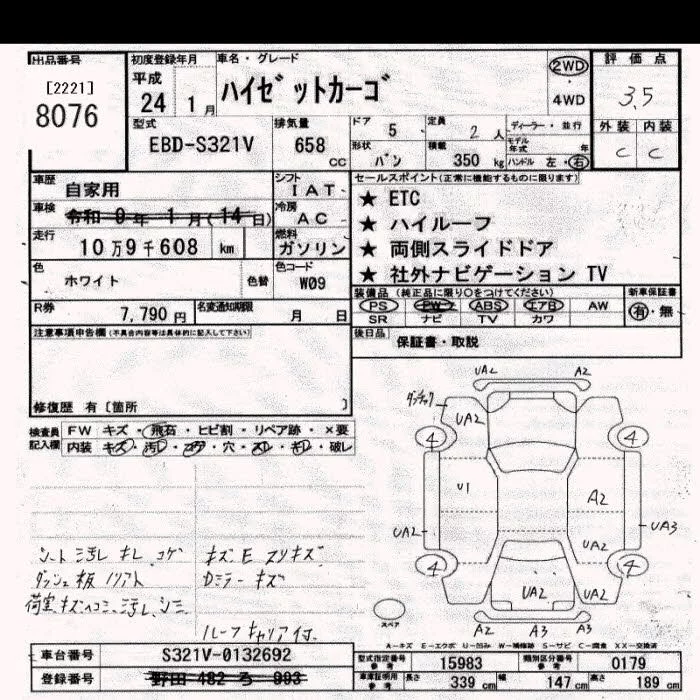 出品番号
[2221]
8076
初度登録年月
平成
24 1月
車名・グレード
ハイゼットカーゴ
2WD
4WD
評価点
3.5
型式
EBD-S321V
排気量
658
CC
ドア
5
定員
2 人
ディーラー・並行
モデル年式 年
形状
バン
積載
350 kg
ハンドル 左・右
外装 内装
C C
車歴
自家用
シフト
IAT
セールスポイント(正常に機能するものに限ります)
★ ETC
★ ハイルーフ
★ 両側スライドドア
★ 社外ナビゲーション TV
車検
令和 0年 1月(14日)
冷房
AC
走行
10万9千608 km
燃料
ガソリン
色
ホワイト
色替
色コード
W09
装備品(純正品に限り○をつけてください)
PS PW ABS エアB AW
SR ナビ TV カワ
新車保証書
有・無
R券
7,790円
名変通知期限
月 日
後日品
保証書・取説
注意事項申告欄(不具合内容等は具体的に記入して下さい)
修復歴 有〔箇所 〕
検査員記入欄
FW キズ・飛石・ヒビ割・リペア跡・×要
内装 キズ・汚レ・コゲ・穴・スレ・キレ・破レ
シート汚レ キレ コゲ
ダッシュ板
荷室キズヘコミ、汚レ、シミ
キズ・E スリキズ
Dミラーキズ
ルーフキャリア付.
UA2 A2
UA2
4 4
U1
A2
UA2 UA3
UA2
4 4
UA2
A2 A3 A3 UA2
スペア
A-キズ E-エクボ U-凹み W-補修跡 S-サビ C-腐食 XX-交換済
車台番号
S321V-0132692
登録番号
野田 482 ろ 993
型式指定番号 参考
15983
類別区分番号 参考
0179
車庫証明用 参考
長さ 339 cm 幅 147 cm 高さ 189 cm